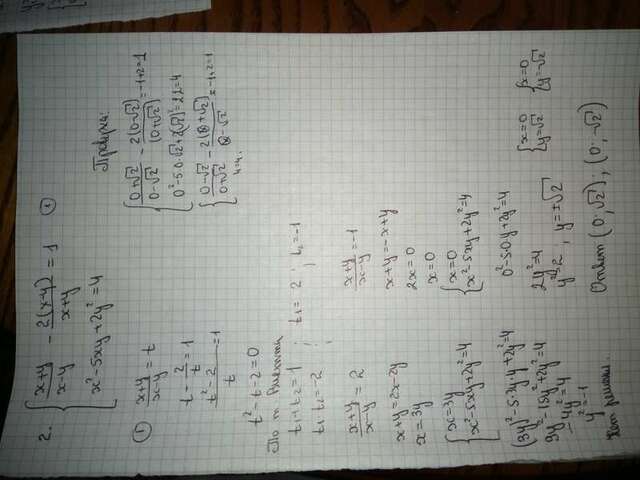 2. { (x+y)/(x-y) - 2(x-y)/(x+y) = 1 ①
x² - 5xy + 2y² = 4
① (x+y)/(x-y) = t
t - 2/t = 1
(t² - 2)/t = 1
t² - t - 2 = 0
По т. Виета
t₁ + t₂ = 1 ; t₁ = 2 ; t₂ = -1
t₁ · t₂ = -2
(x+y)/(x-y) = 2
x+y = 2x-2y
x = 3y
{ x = 3y
x² - 5xy + 2y² = 4
(3y)² - 5·3y·y + 2y² = 4
9y² - 15y² + 2y² = 4
-4y² = 4
y² = -1
Нет решени.
(x+y)/(x-y) = -1
x+y = -x+y
2x = 0
x = 0
{ x = 0
x² - 5xy + 2y² = 4
0² - 5·0y + 2y² = 4
2y² = 4
y² = 2 ; y = ±√2
{ x = 0
y = √2
{ x = 0
y = -√2
Ответ (0; √2) ; (0; -√2)
Проверка:
{ (0+√2)/(0-√2) - 2(0-√2)/(0+√2) = -1+2 = 1
0² - 5·0·√2 + 2(√2)² = 2·2 = 4
{ (0-√2)/(0+√2) - 2(0+√2)/(0-√2) = -1+2 = 1
4 = 4.